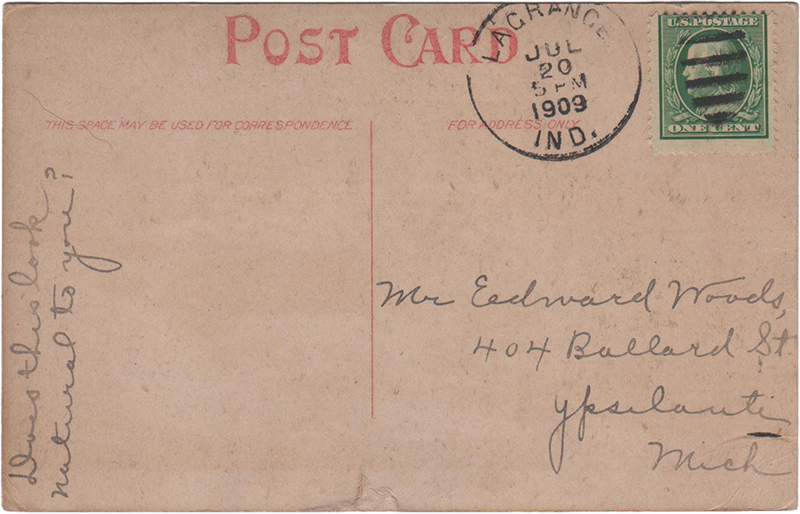 POST CARD
LAGRANGE
JUL
20
5 PM
1909
IND.
U.S. POSTAGE
ONE CENT
THIS SPACE MAY BE USED FOR CORRESPONDENCE
FOR ADDRESS ONLY
Does this look
natural to you?
Mr Eedward Woods,
404 Ballard St
Ypsilanti
Mich